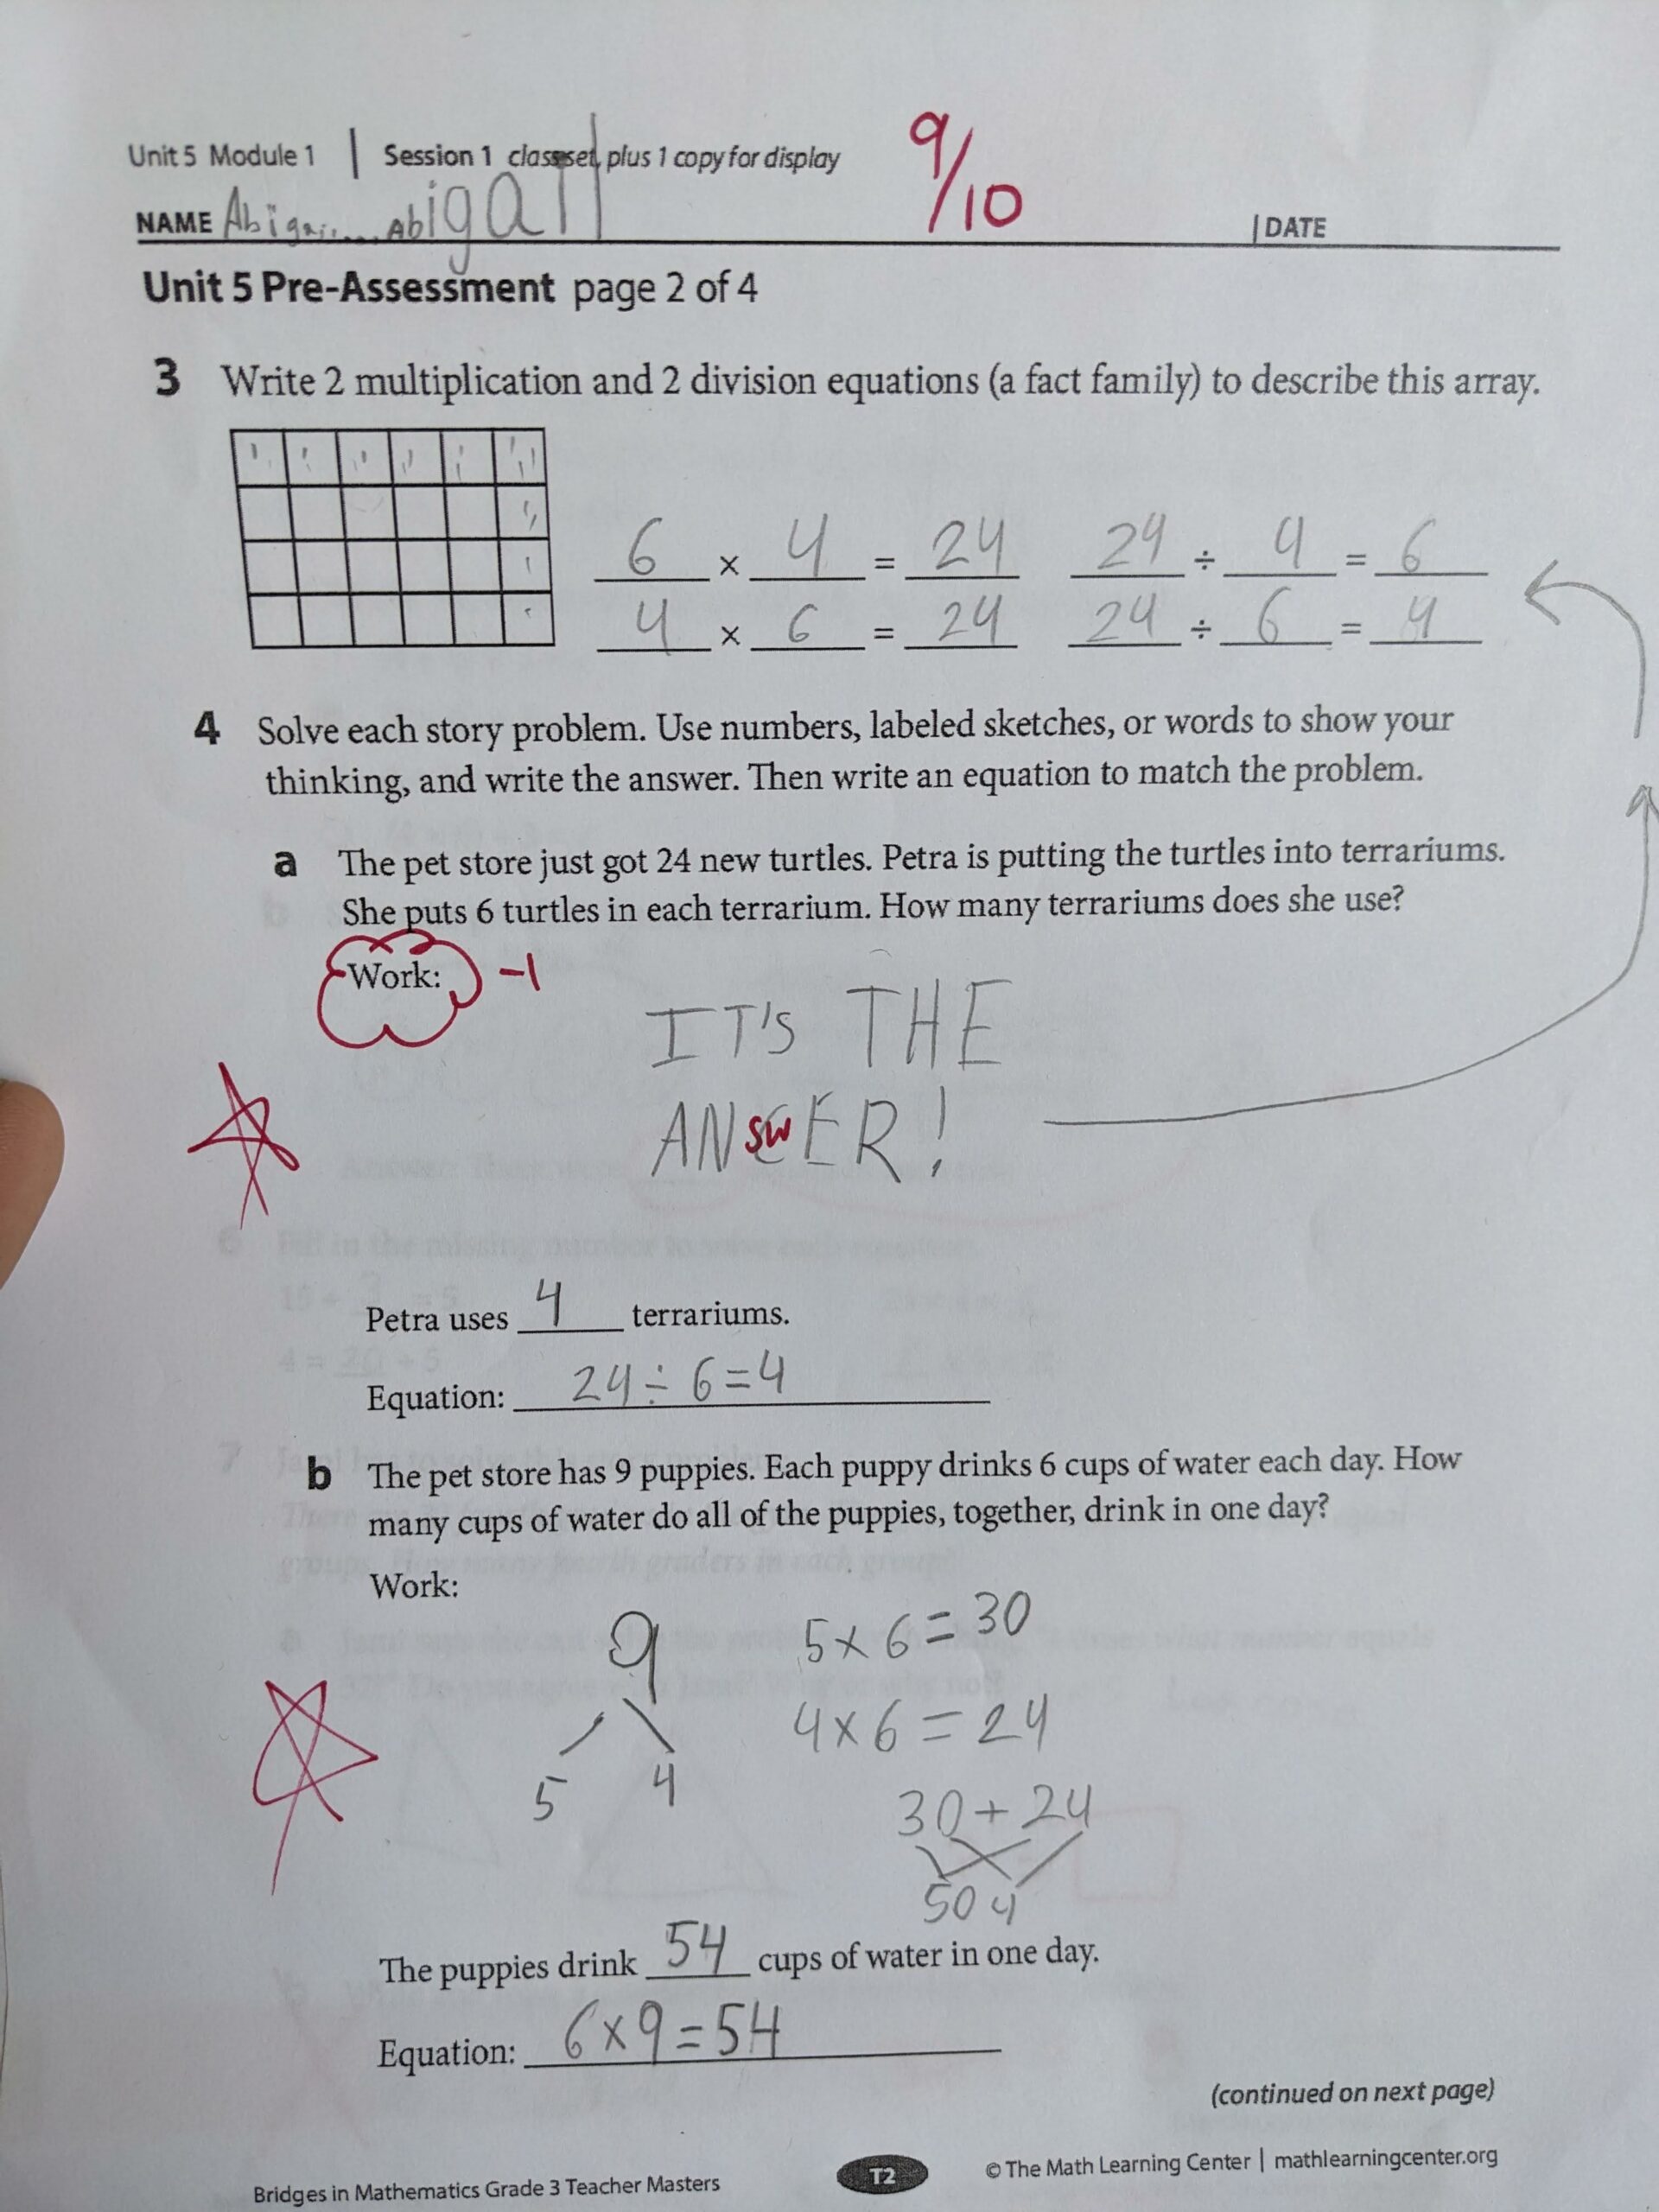 Unit 5 Module 1 | Session 1 class set, plus 1 copy for display
9/10
NAME Abigail.... Abigail | DATE
Unit 5 Pre-Assessment page 2 of 4
3 Write 2 multiplication and 2 division equations (a fact family) to describe this array.
6 × 4 = 24 24 ÷ 4 = 6
4 × 6 = 24 24 ÷ 6 = 4
4 Solve each story problem. Use numbers, labeled sketches, or words to show your
thinking, and write the answer. Then write an equation to match the problem.
a The pet store just got 24 new turtles. Petra is putting the turtles into terrariums.
She puts 6 turtles in each terrarium. How many terrariums does she use?
Work: -1
IT'S THE
ANSWER!
Petra uses 4 terrariums.
Equation: 24 ÷ 6 = 4
b The pet store has 9 puppies. Each puppy drinks 6 cups of water each day. How
many cups of water do all of the puppies, together, drink in one day?
Work:
9 5 × 6 = 30
4 × 6 = 24
5 4
30 + 24
50 4
The puppies drink 54 cups of water in one day.
Equation: 6 × 9 = 54
(continued on next page)
Bridges in Mathematics Grade 3 Teacher Masters T2 © The Math Learning Center | mathlearningcenter.org